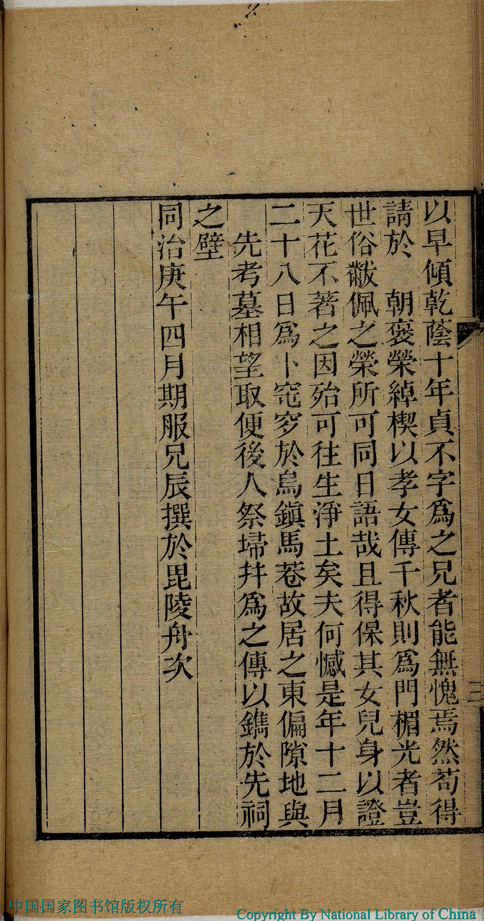 以早傾乾蔭十年貞不字爲之兄者能無愧焉然苟得
請於　朝褒榮綽楔以孝女傳千秋則爲門楣光者豈
世俗黻佩之榮所可同日語哉且得保其女兒身以證
天花不著之因殆可往生淨土矣夫何憾是年十二月
二十八日爲卜窀穸於烏鎮馬巷故居之東偏隙地與
先考墓相望取便後人祭埽幷爲之傳以鐫於先祠
之壁
同治庚午四月期服兄辰撰於毘陵舟次
中国国家图书馆版权所有
Copyright By National Library of China